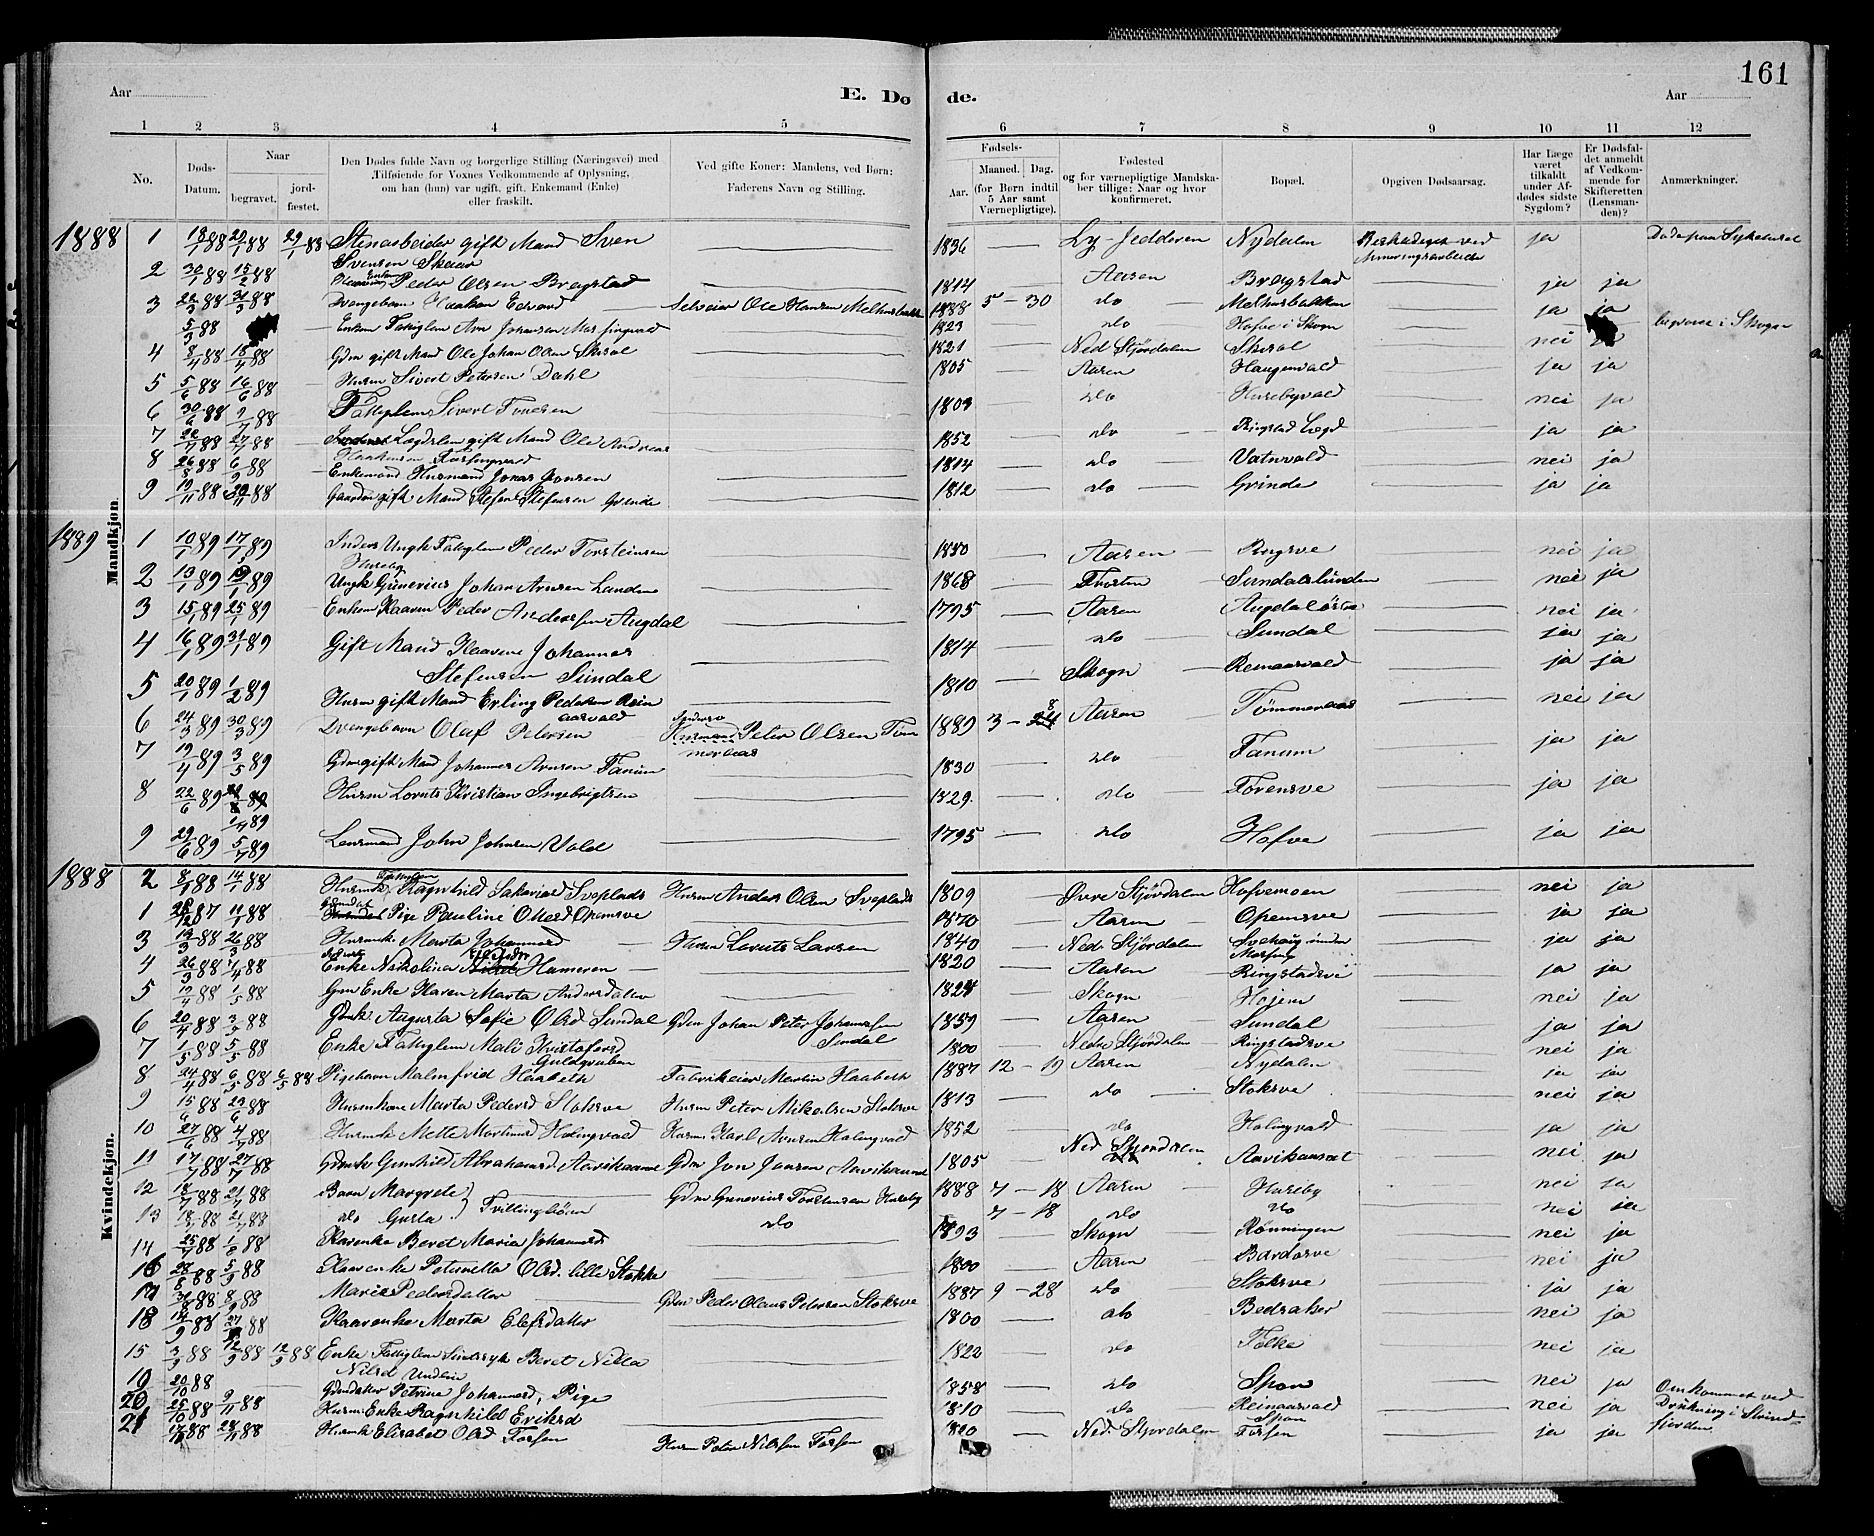 161
Aar
E. Dø de.
Aar
1 2 3 4 5 6 7 8 9 10 11 12
No.
Døds-Datum.
Naar
begravet.
jord-fæstet.
Den Dødes fulde Navn og borgerlige Stilling (Næringsvei) med
Tilføiende for Voxnes Vedkommende af Oplysning,
om han (hun) var ugift, gift, Enkemand (Enke)
eller fraskilt.
Ved gifte Koner: Mandens, ved Børn:
Faderens Navn og Stilling.
Fødsels-
Aar.
Maaned. Dag.
(for Børn indtil
5 Aar samt
Værnepligtige).
Fødested
og for værnepligtige Mandska-
ber tillige: Naar og hvor
konfirmeret.
Bopæl.
Opgiven Dødsaarsag.
Har Læge
været
tilkaldt
under Af-
dødes sidste
Sygdom?
Er Dødsfal-
det anmeldt
af Vedkom-
mende for
Skifteretten
(Lensman-
den)?
Anmærkninger.
Mandkjøn
1888 1 18/1 88 20/1 88 29/1 88 Stenarbeider gift Mand Sven Svensen Skaar 1836 Ly-Jedderen Nydalen Beskadiget ved Mineringsarbeide ja
2 30/1 88 15/2 88 Peder Olsen Bragstad 1814 Aasen Bragstad ja ja
3 88 31/3 88 Drengebarn Haakon Edvard Ole Hansen Melhusbakke 1888 5 - 30 do Melhusbakken ja ja
5/3 88 Enkem Fattiglem Arn Johansen 1823 do Hofve i Skogn begravet i Skogn
4 8/4 88 15/4 88 Gdm gift Mand Ole Johan Olsen Skjesol 1821 Ned Stjørdalen nei
5 5/6 88 16/6 88 Husm Sivert Petersen Dahl 1805 Aasen Haugenvald ja ja
6 30/6 88 9/7 88 Fattiglem Sivert 1803 do Husebyvald nei ja
7 22/7 88 27/7 88 Lægdslem gift Mand Ole Andreas Haakonsen 1852 do Ringstad Lægd ja ja
8 26/8 88 6/9 88 Enkemand Husmand Jonas Jonsen 1814 do Vatnvald nei ja
9 19/11 88 29/11 88 Gaardm gift Mand Stefen Stefensen Grinde 1812 do Grinde ja ja
1889 1 10/1 89 17/1 89 Inders Ungk Fattiglem Peder Torsteinsen Huseby 1850 Aasen Ringsve nei ja
2 13/1 89 19/1 89 Ungk Gunerius Johan Arnsen Lunden 1868 Frosten Sundalslunden nei ja
3 15/1 89 25/1 89 Enkem Kaarm Peder Anderssen Augdal 1795 Aasen nei ja
4 16/1 89 31/1 89 Gift Mand Johannes Stefensen Sundal 1814 do Sundal ja ja
5 20/1 89 1/2 89 Husm gift Mand Erling Pedersen Reinaasvald 1810 Skogn Reinaasvald ja ja
6 24/3 89 30/3 89 Drengebarn Olaf Petersen Husmand Peter Olsen Tømmeraas 1889 3 - 8 Aasen Tømmeraas nei ja
7 19/4 89 3/5 89 Gdm gift Mand Johannes Arnsen Fanum 1830 do Fanum ja ja
8 22/6 89 1/7 89 Husm Lornts Kristian Ingebrigtsen 1829 do Forensve ja ja
9 29/6 89 5/7 89 Lensmand John Johnsen Vold 1795 do Hofve ja ja
Kvindekjøn.
1888 2 8/1 88 14/1 88 Husmk Fattiglem Ragnhild Sakariasd Sveplads Husm Anders Olsen Sveplads 1809 Øvre Stjørdalen Hofvemoen nei ja
1 28/12 87 11/1 88 Pige Pauline Olsd Opemsve 1870 Aasen Opemsve ja ja
3 19/3 88 26/3 88 Husmke Marta Johannesd Husm Lornts Larsen 1840 Nedr Stjørdalen Svehaug under ja ja
4 26/3 88 4/4 88 Enke Nikolina Hammeren 1820 Aasen Ringstadsve ja ja
5 88 1/5 88 Gm Enke Karen Marta Andersdatter 1824 Skogn Hojem nei ja
6 20/4 88 3/5 88 Gdmk Augusta Sofie Olsd Sundal Gdm Johan Peter Johannessen Sundal 1859 Aasen Sundal ja ja
7 1/5 88 5/5 88 Enke Fattiglem Mali Kristofersd Guldgruben 1800 Nedre Stjørdalen Ringstadsve nei ja
8 24/4 88 6/5 88 6/5 88 Pigebarn Malmfrid Haabeth Fabrikeier Martin Haabeth 1887 12 - 19 Aasen Nydalen ja ja
9 15/6 88 23/6 88 Husmkone Marta Pedersd Stoksve Husm Peter Mikalsen Stoksve 1813 do Stoksve nei ja
10 27/6 88 4/7 88 Husmke Mette Martinusd Holmgvald Husm Karl Arnsen Holmgvald 1852 do Holmgvald ja ja
11 17/7 88 27/7 88 Gdmk Gunhild Abrahamsd Gdm Jon Jonsen 1805 Ned Stjørdalen nei ja
12 18/7 88 21/7 88 Barn Margrete } Tvillingbørn Gdm Gunerius Torstensen Huseby 1888 7 - 18 Aasen Huseby nei ja
13 18/7 88 21/7 88 do Gusta do 7 - 18 do do nei ja
14 25/7 88 1/8 88 Kaarenke Beret Maria Johannesd 1893 Skogn Rønningen nei ja
16 28/8 88 5/9 88 Kaarenke Petronella Olsd. lille Stokke 1800 Aasen Bardosve nei ja
17 31/8 88 8/9 88 Marie Pedersdatter Gdm Peder Olaus Petersen Stoksve 1887 9 - 28 do Stoksve ja ja
18 14/9 88 27/9 88 Kaarenke Marta Elefsdatter 1800 do Bedsaker nei ja
15 3/9 88 12/9 88 12/9 88 Enke Fattiglem Sindssyk Beret Nilsd 1822 do nei ja
19 20/10 88 Gdmdatter Petrine Johannesd, Pige 1858 do Span nei ja Omkommet ved Drukning i Strindfjorden
20 25/10 88 9/11 88 Husm. Enke Ragnhild Eriksd 1810 do Reinaasvald nei ja
21 17/11 88 24/11 88 Husmk Elisabet Olsd Forsen Husm Peter Nilssen Forsen 1820 Ned. Stjørdalen Forsen ja ja